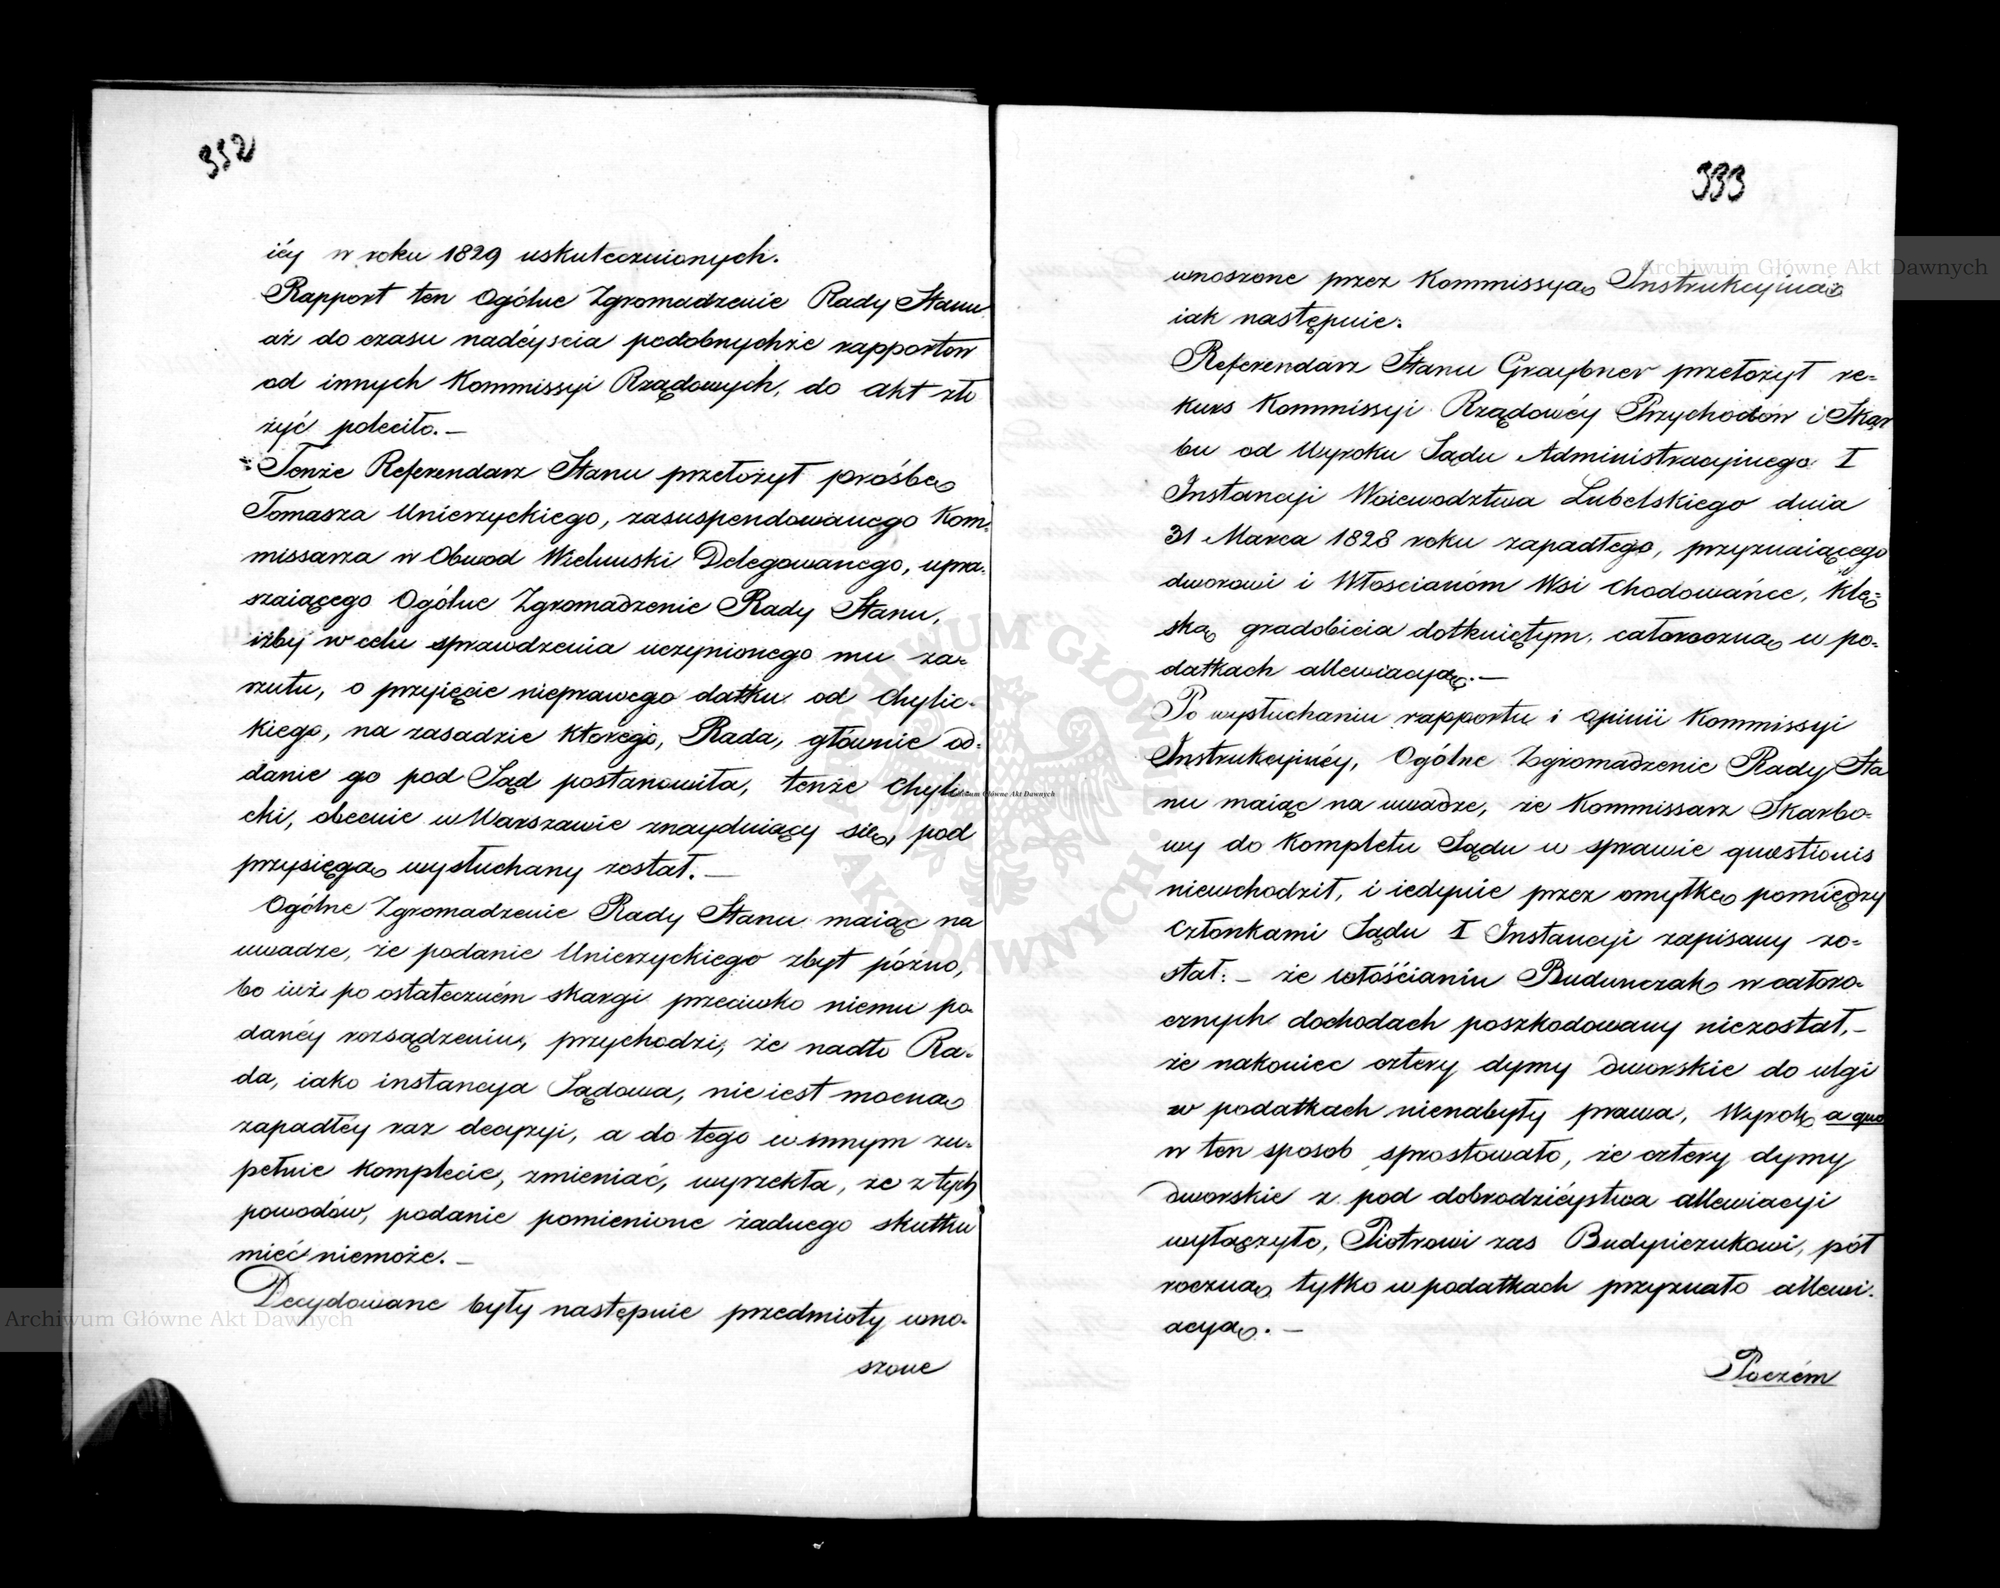 332
iéy w roku 1829 uskutecznionych.
Rapport ten Ogólne Zgromadzenie Rady Stanu
aż do czasu nadéyscia podobnychże rapportów
od innych Kommissyi Rządowych, do akt zło
żyć poleciło. —
Tenże Referendarz Stanu przełożył prośbę
Tomasza Unierzyckiego, zasuspendowanego Kom-
missarza w Obwod Wieluński Delegowanego, upra-
szaiącego Ogólne Zgromadzenie Rady Stanu,
iżby w celu sprawdzenia uczynionego mu za-
rzutu, o przyięcie nieprawego datku od Chylic-
kiego, na zasadzie którego, Rada, głównie od-
danie go pod Sąd postanowiła, tenże Chylic-
cki, obecnie w Warszawie znayduiący się, pod
przysięgą wysłuchany został. —
Ogólne Zgromadzenie Rady Stanu maiąc na
uwadze, że podanie Unierzyckiego zbyt późno,
bo iuż po ostateczném skargi przeciwko niemu po-
danéy rozsądzeniu, przychodzi, że nadto Ra-
da, iako instancya Sądowa, nie iest mocna
zapadłéy raz decyzyi, a do tego w innym zu-
pełnie komplecie, zmieniać, wyrzekła, że z tych
powodów, podanie pomienione żadnego skutku
mieć niemoże. —
Decydowane były następnie przedmioty wno-
szone
333
wnoszone przez Kommissyą Instrukcyiną
iak następuie:
Referendarz Stanu Graybner przełożył re-
kurs Kommissyi Rządowéy Przychodów i Skar
bu od Wyroku Sądu Administracyinego I
Instancyi Woiewodztwa Lubelskiego dnia
31 Marca 1828 roku zapadłego, przyznaiącego
dworowi i Włościanóm Wsi Chodowańce, klę-
ską gradobicia dotkniętym, całoroczną w po-
datkach allewiacyą. —
Po wysłuchaniu rapportu i opinii Kommissyi
Instrukcyinéy, Ogólne Zgromadzenie Rady Sta
nu maiąc na uwadze, że Kommissarz Skarbo-
wy do kompletu Sądu w sprawie quæstionis
niewchodził, i iedynie przez omyłkę pomiędzy
Członkami Sądu I Instancyi zapisany zo-
stał: — że włościanin Budynczak w całoro-
cznych dochodach poszkodowany niezostał, —
że nakoniec cztery dymy dworskie do ulgi
w podatkach nienabyły prawa, Wyrok a quo
w ten sposob sprostowało, że cztery dymy
dworskie z pod dobrodziéystwa allewiacyi
wyłączyło, Piotrowi zas Budyniczukowi, pół
roczną tylko w podatkach przyznało allewi-
acyą. —
Poczém
Archiwum Główne Akt Dawnych
Archiwum Główne Akt Dawnych
Archiwum Główne Akt Dawnych
ARCHIWUM GŁÓWNE AKT DAWNYCH